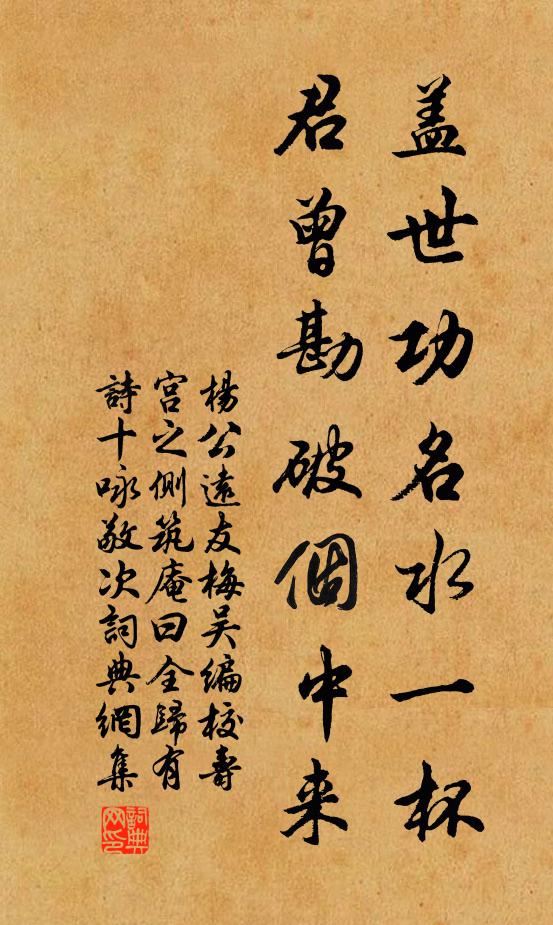 盖世功名水一杯
君曾勘破個中来
楊公遠友梅吴編校壽
宫之側筑庵曰全歸有
詩十咏敬次詞典網集
詞典网印